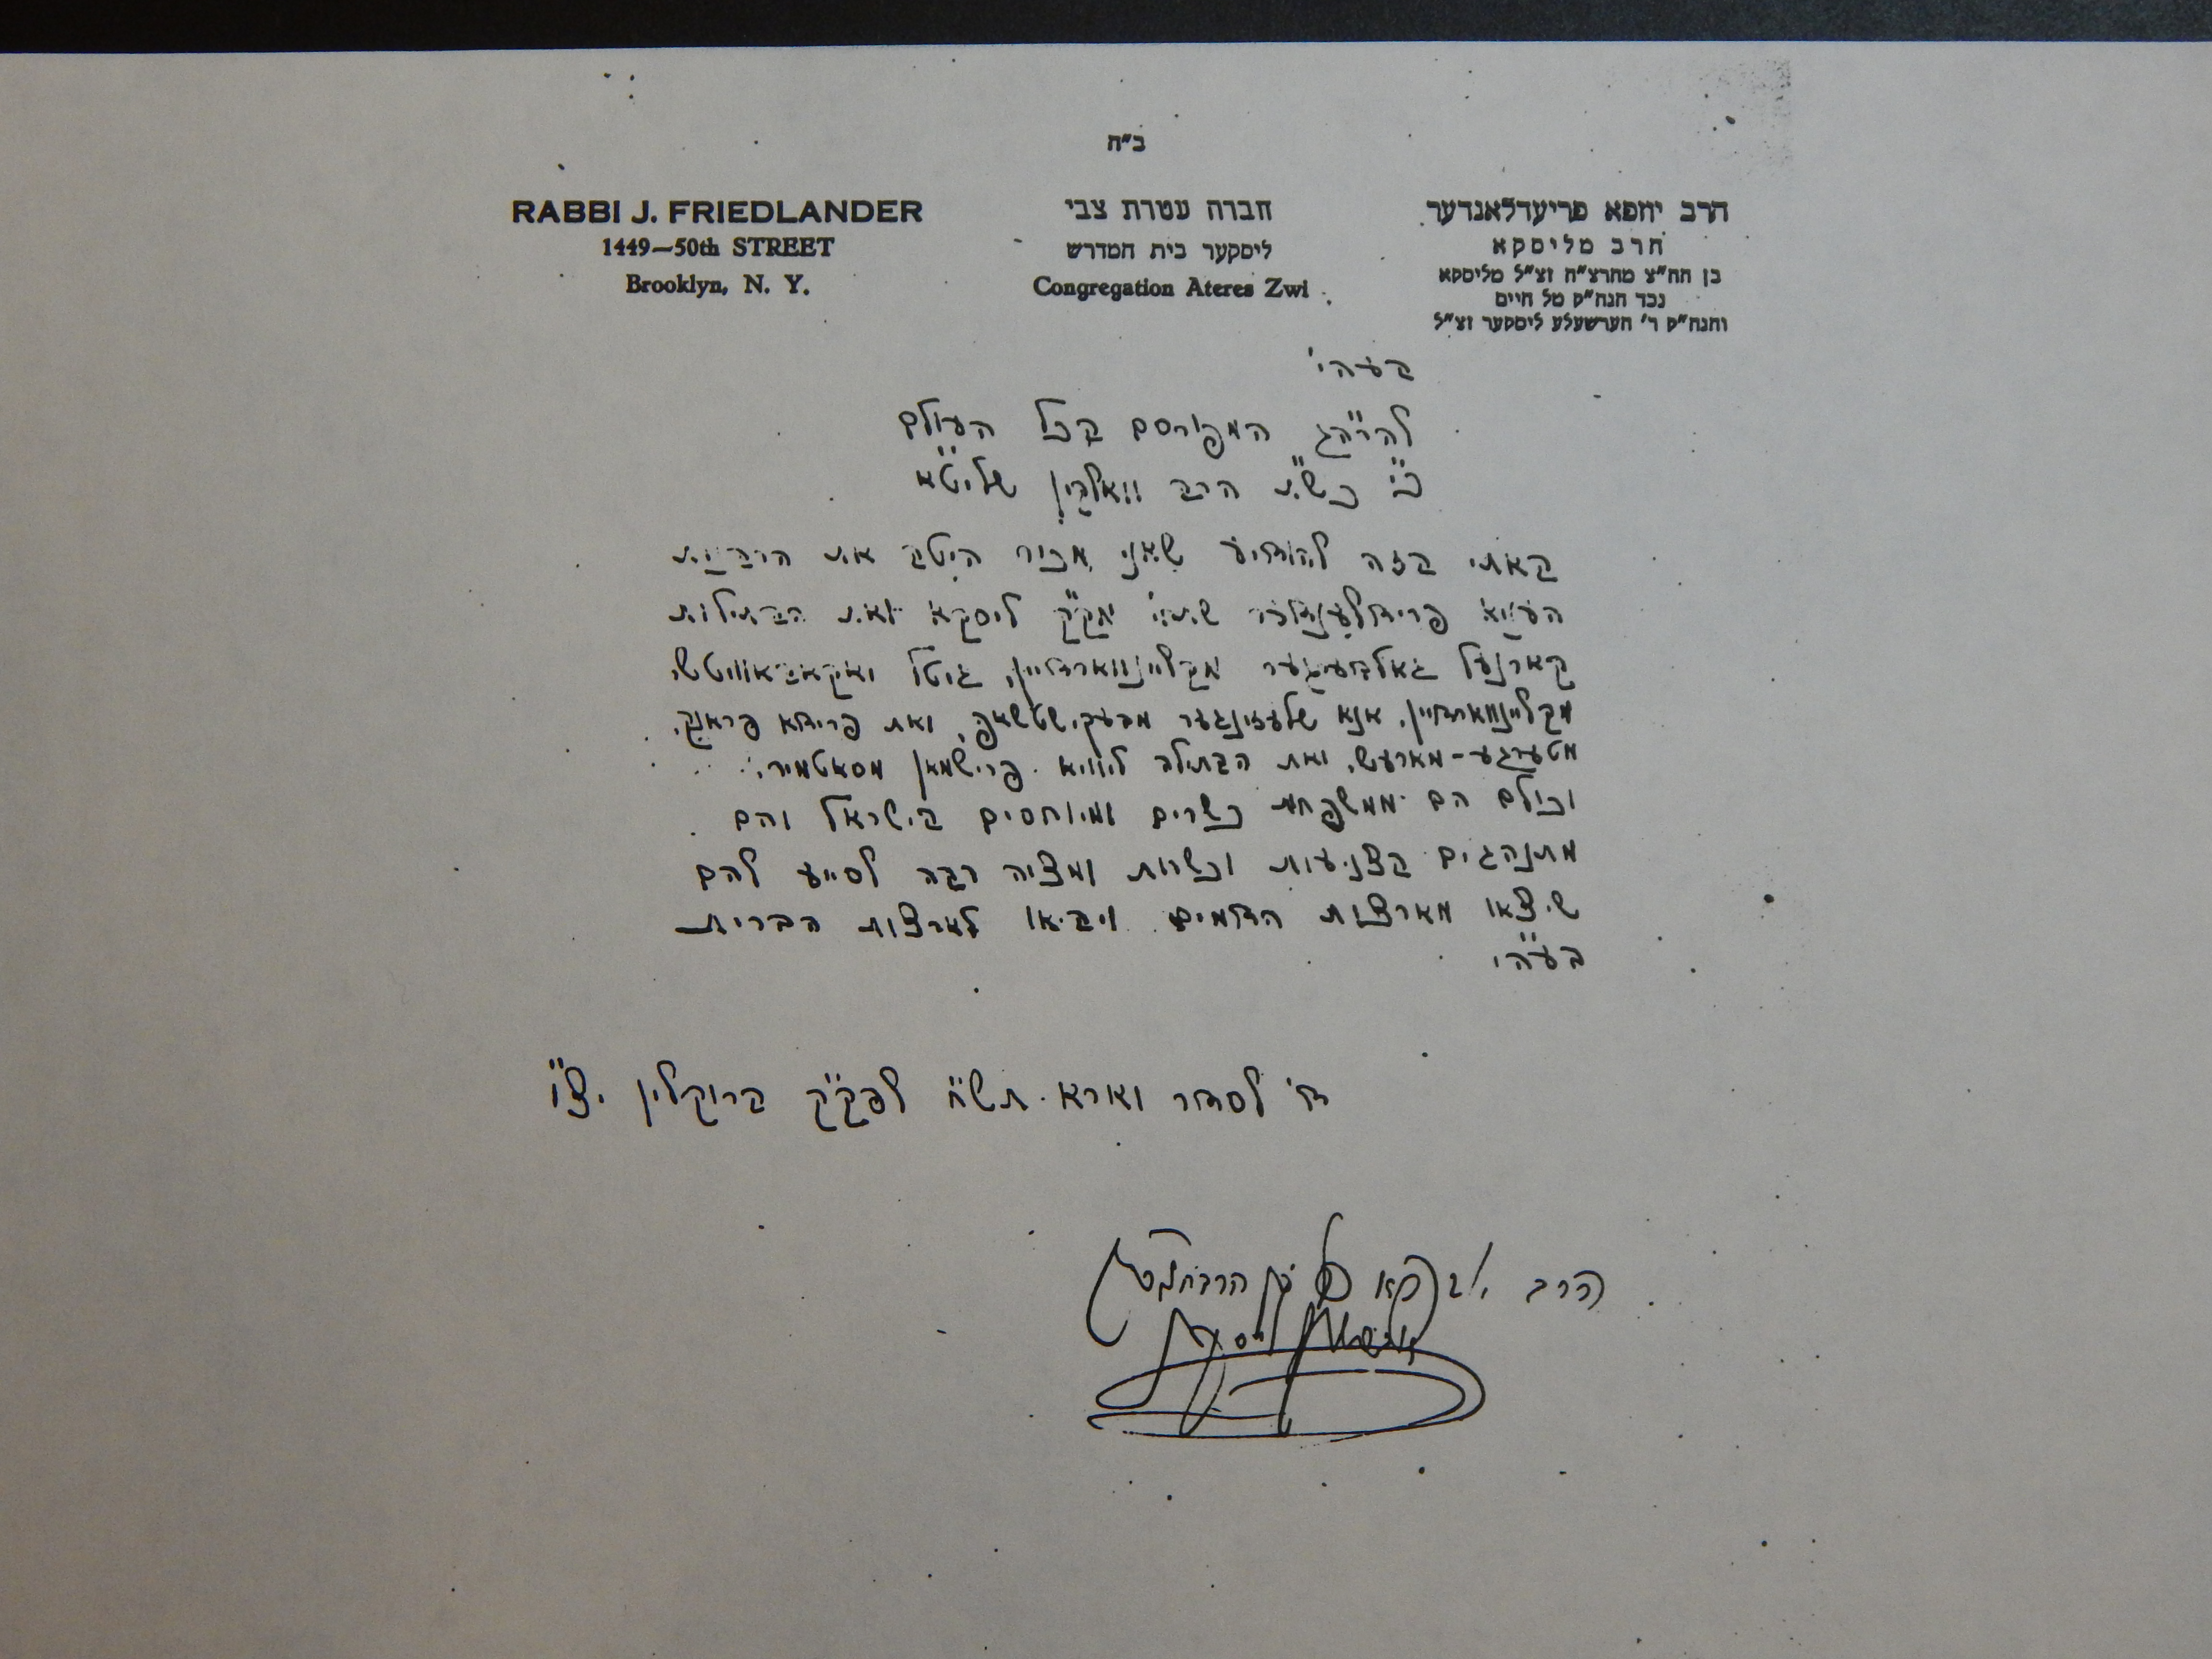 ב"ה
RABBI J. FRIEDLANDER
1449—50th STREET
Brooklyn, N. Y.
חברה עטרת צבי
ליסקער בית המדרש
Congregation Ateres Zwi
הרב יוזפא פריעדלאנדער
הרב מליסקא
בן הה"צ מהרצ"ה זצ"ל מליסקא
נכד הגה"ק טל חיים
והגה"ק ר' הערשעלע ליסקער זצ"ל
בעהי'
להר"הג המפורסם בכל העולם
כ"י כש"ת הרב וואלקין שליט"א
באתי בזה להודיע שאני מכיר היטב את הרבנית
פרידלענדער שתחי' מק"ק ליסקא ואת הבתולות
קארנעל גאלדבערגער מקליינווארדיין, גיטל יאקאבאוויטש,
מקליינווארדיין, אנא שלעזינגער ואת פרידא פראנק,
ואת הבתולה ליוויא פרישמאן מסאטמיר.
וכולם הם ממשפחת כשרים ומיוחסים בישראל והם
מתנהגים בצניעות וכשרות ומצוה רבה לסייע להם
שיצאו מארצות הדמים ויבואו לארצות הברית
בעה"י
ד' לסדר וארא תש"ח לפק"ק ברוקלין יצ"ו
הרב